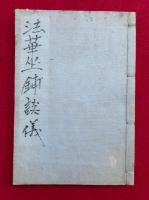 法華坐鋪談儀